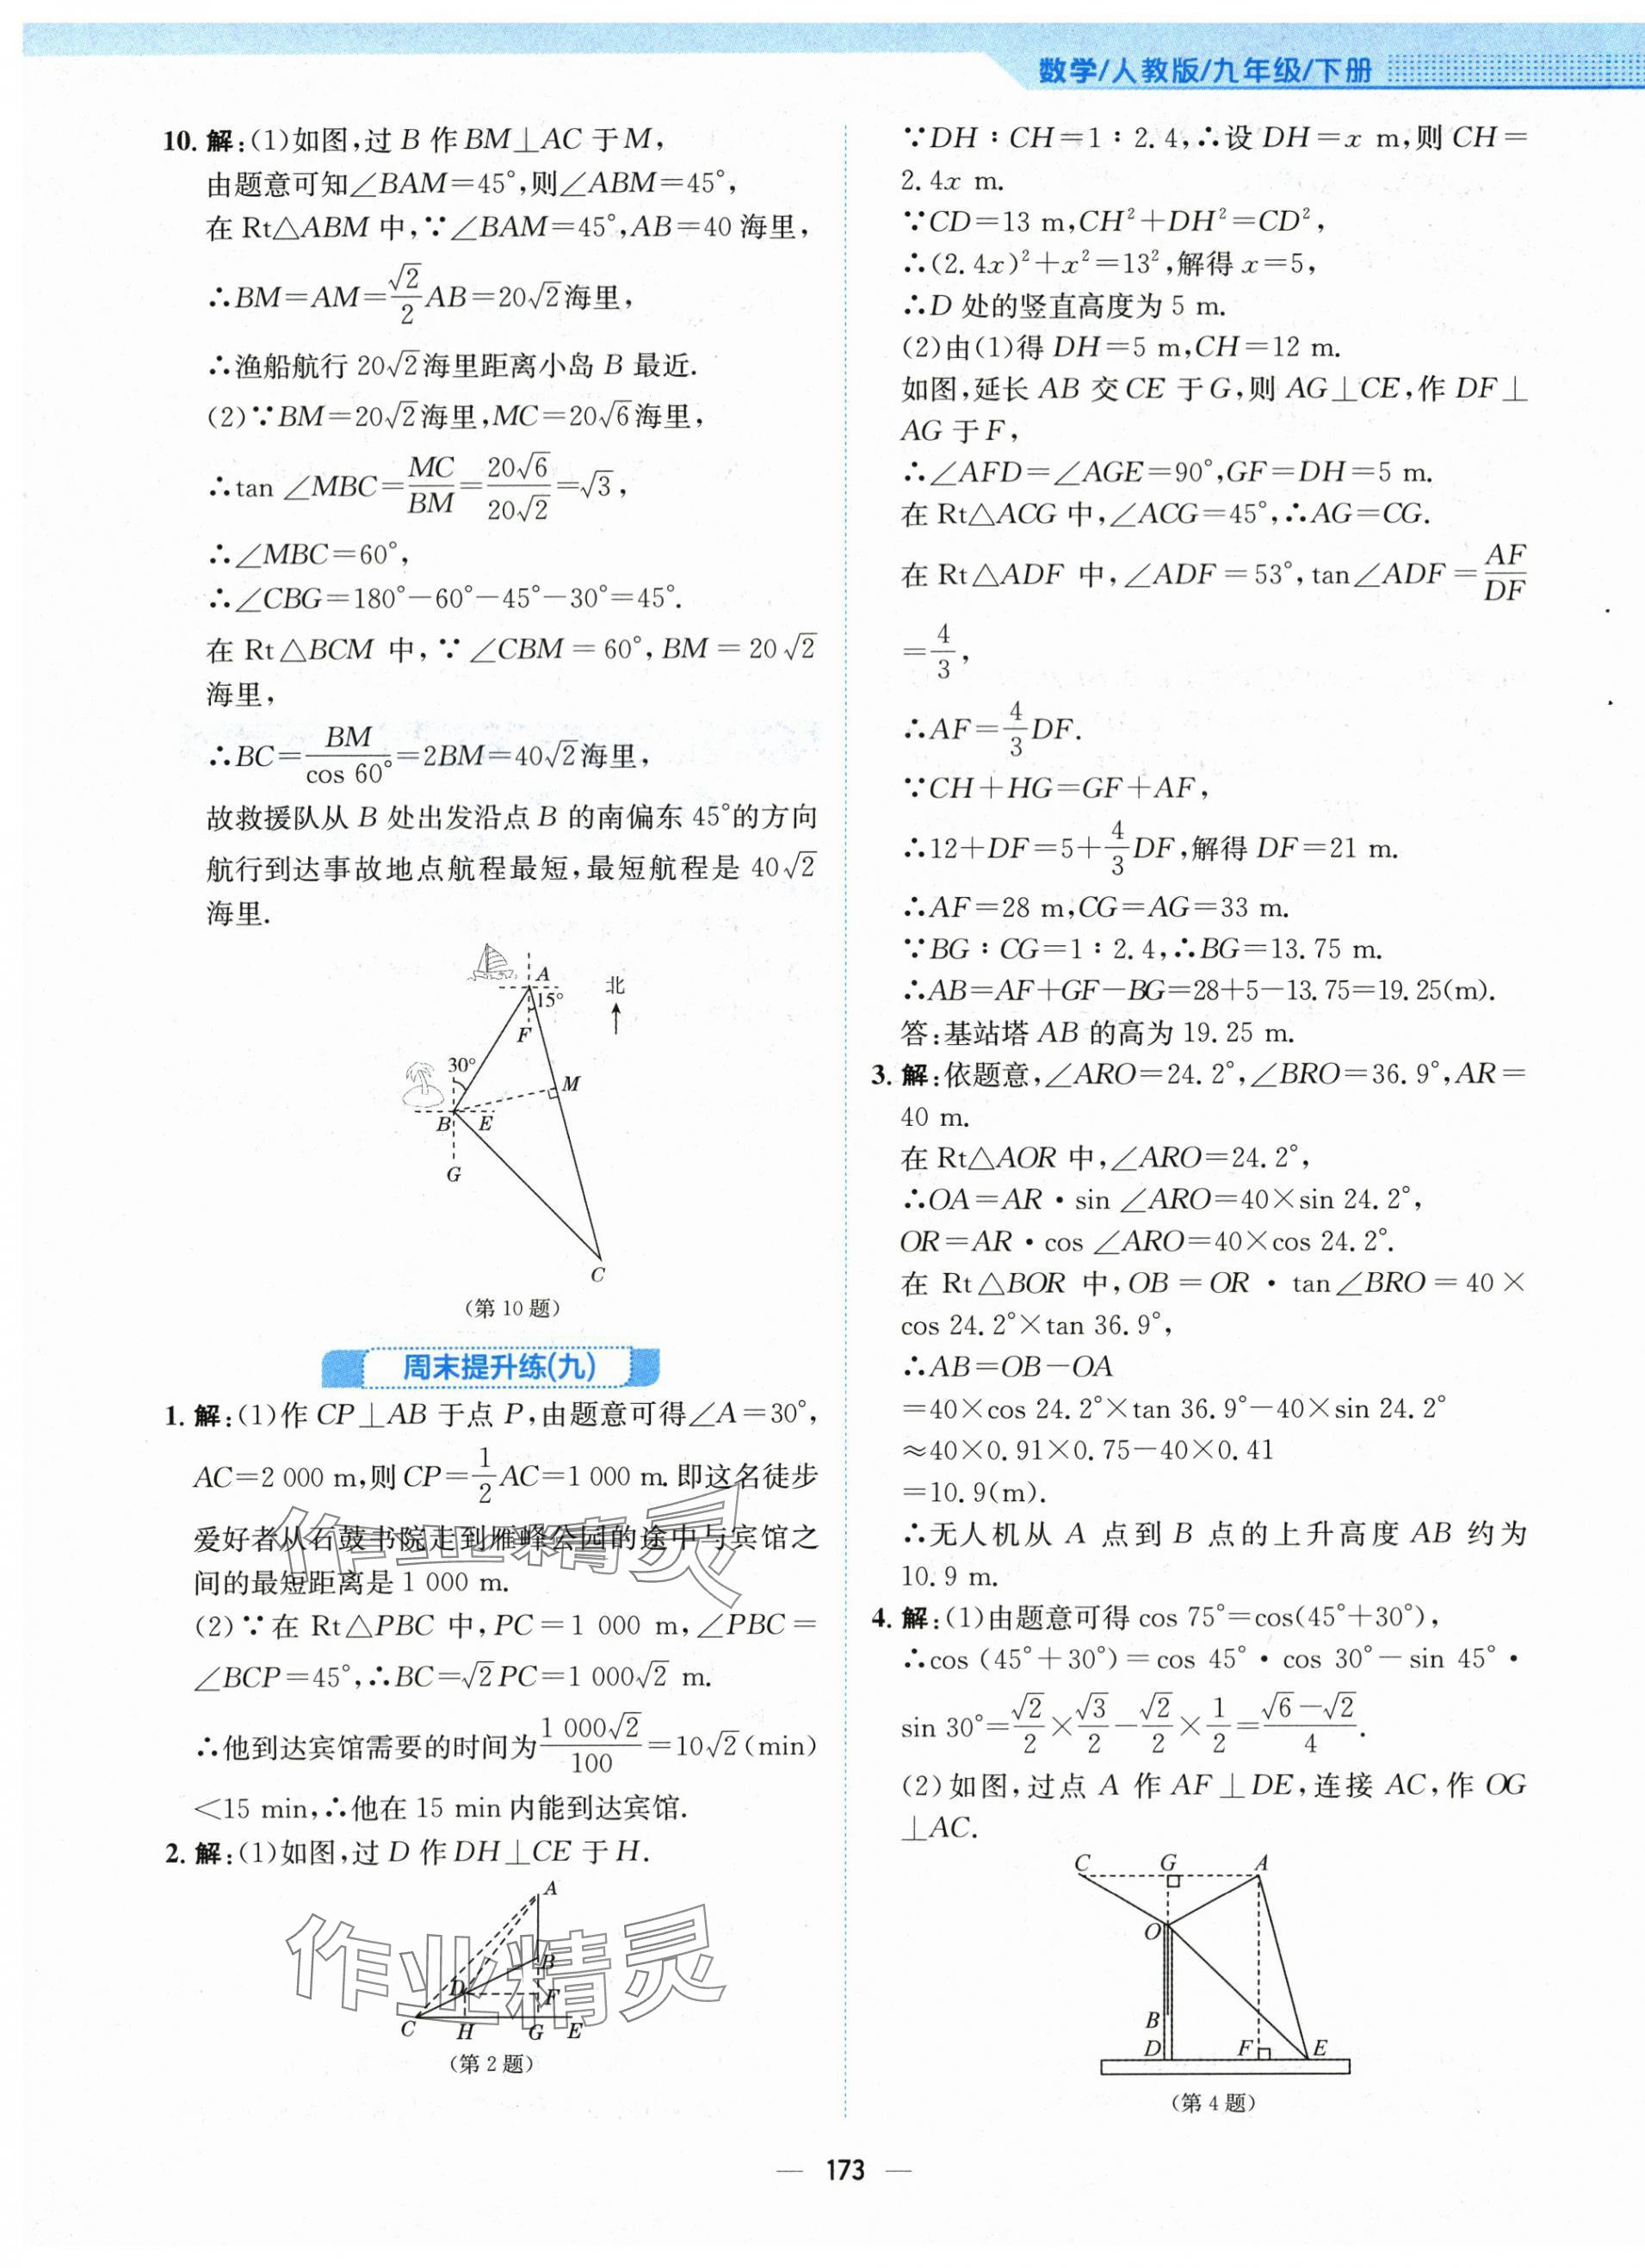 数学/人教版/九年级/下册
10. 解:(1)如图,过 B 作 BM⊥AC 于 M,
由题意可知∠BAM=45°,则∠ABM=45°,
在 Rt△ABM 中,∵∠BAM=45°,AB=40 海里,
∴BM=AM=√2/2 AB=20√2海里,
∴渔船航行 20√2海里距离小岛 B 最近.
(2)∵BM=20√2海里,MC=20√6海里,
∴tan ∠MBC=MC/BM=20√6/20√2=√3,
∴∠MBC=60°,
∴∠CBG=180°-60°-45°-30°=45°.
在 Rt△BCM 中,∵∠CBM=60°,BM=20√2
海里,
∴BC=BM/cos 60°=2BM=40√2海里,
故救援队从 B 处出发沿点 B 的南偏东 45°的方向
航行到达事故地点航程最短,最短航程是 40√2
海里.
A
15°
北
F
30°
M
B
E
G
C
(第 10 题)
周末提升练(九)
1. 解:(1)作 CP⊥AB 于点 P,由题意可得∠A=30°,
AC=2 000 m,则 CP=1/2 AC=1 000 m. 即这名徒步
爱好者从石鼓书院走到雁峰公园的途中与宾馆之
间的最短距离是 1 000 m.
(2)∵在 Rt△PBC 中,PC=1 000 m,∠PBC=
∠BCP=45°,∴BC=√2PC=1 000√2 m.
∴他到达宾馆需要的时间为1 000√2/100=10√2(min)
<15 min,∴他在 15 min 内能到达宾馆.
2. 解:(1)如图,过 D 作 DH⊥CE 于 H.
A
B
D
F
C
H
G
E
(第 2 题)
∵DH∶CH=1∶2.4,∴设 DH=x m,则 CH=
2.4x m.
∵CD=13 m,CH²+DH²=CD²,
∴(2.4x)²+x²=13²,解得 x=5,
∴D 处的竖直高度为 5 m.
(2)由(1)得 DH=5 m,CH=12 m.
如图,延长 AB 交 CE 于 G,则 AG⊥CE,作 DF⊥
AG 于 F,
∴∠AFD=∠AGE=90°,GF=DH=5 m.
在 Rt△ACG 中,∠ACG=45°,∴AG=CG.
在 Rt△ADF 中,∠ADF=53°,tan∠ADF=AF/DF
=4/3,
∴AF=4/3 DF.
∵CH+HG=GF+AF,
∴12+DF=5+4/3 DF,解得 DF=21 m.
∴AF=28 m,CG=AG=33 m.
∵BG∶CG=1∶2.4,∴BG=13.75 m.
∴AB=AF+GF-BG=28+5-13.75=19.25(m).
答:基站塔 AB 的高为 19.25 m.
3. 解:依题意,∠ARO=24.2°,∠BRO=36.9°,AR=
40 m.
在 Rt△AOR 中,∠ARO=24.2°,
∴OA=AR·sin ∠ARO=40×sin 24.2°,
OR=AR·cos ∠ARO=40×cos 24.2°.
在 Rt△BOR 中,OB=OR·tan∠BRO=40×
cos 24.2°×tan 36.9°,
∴AB=OB-OA
=40×cos 24.2°×tan 36.9°-40×sin 24.2°
≈40×0.91×0.75-40×0.41
=10.9(m).
∴无人机从 A 点到 B 点的上升高度 AB 约为
10.9 m.
4. 解:(1)由题意可得 cos 75°=cos(45°+30°),
∴cos (45°+30°)=cos 45°·cos 30°-sin 45°·
sin 30°=√2/2×√3/2-√2/2×1/2=(√6-√2)/4.
(2)如图,过点 A 作 AF⊥DE,连接 AC,作 OG
⊥AC.
C
G
A
O
B
D
F
E
(第 4 题)
作业精灵
作业精灵
— 173 —